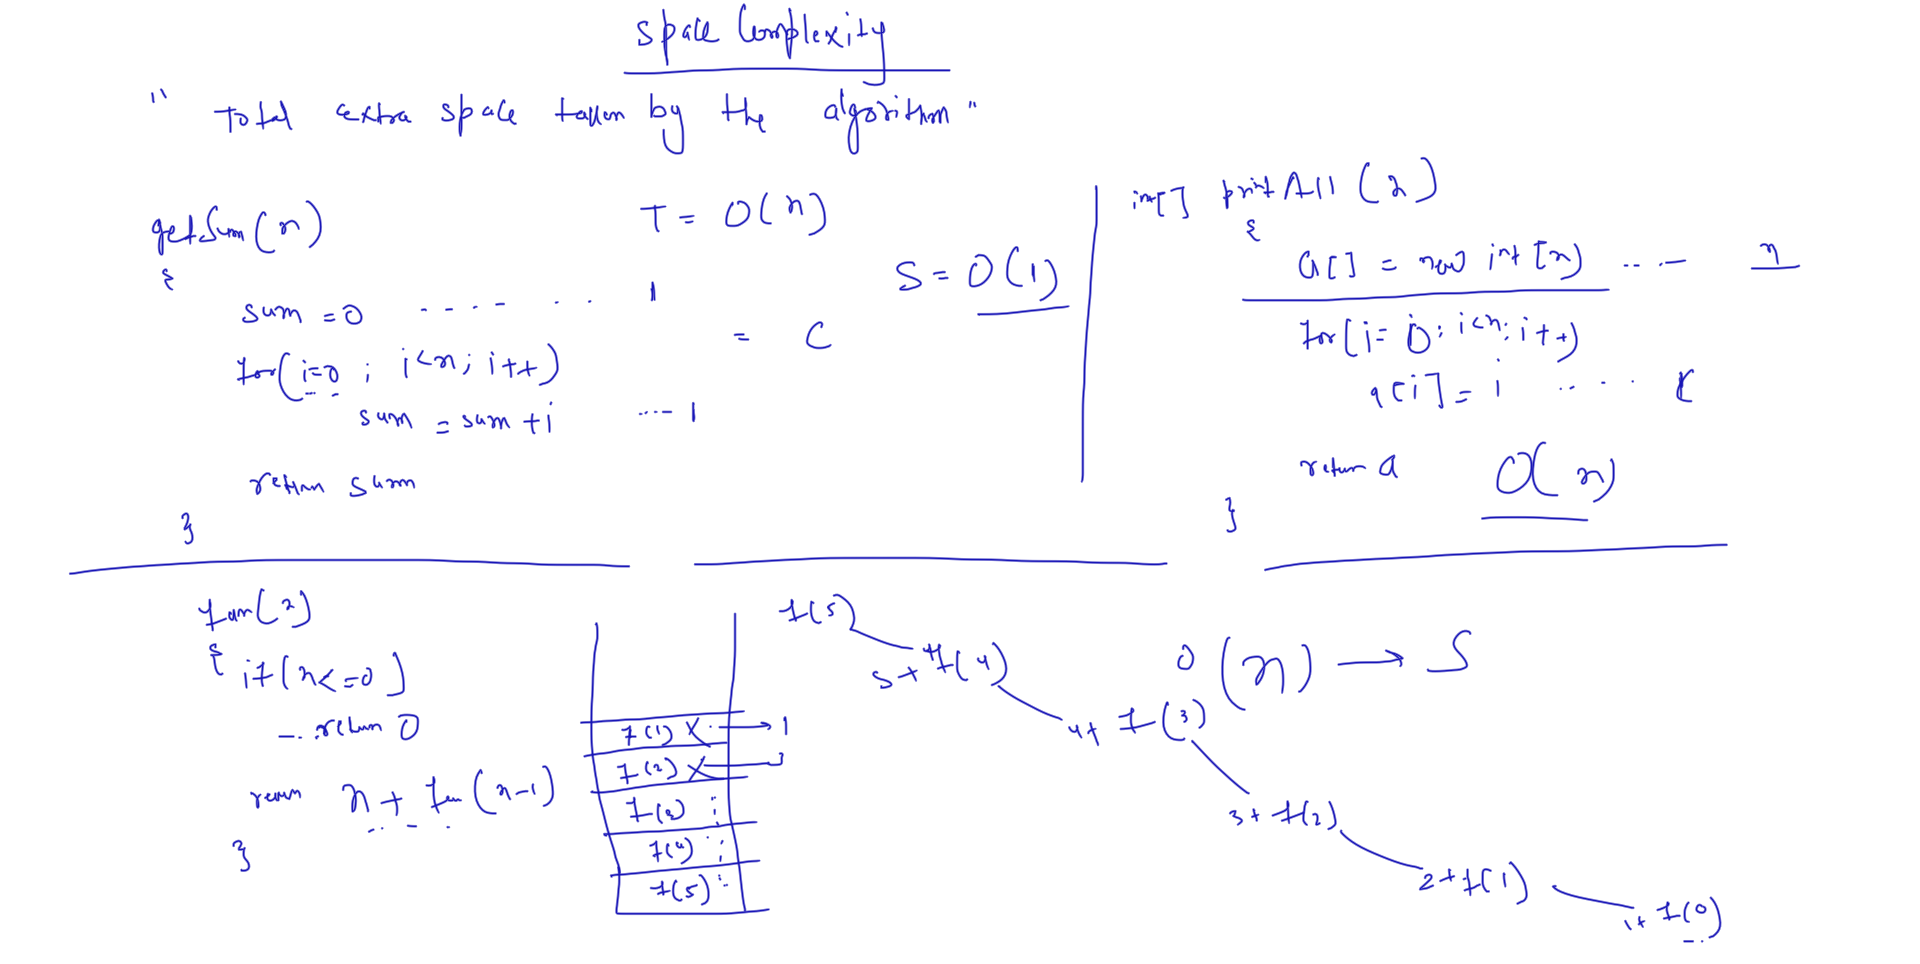 Space Complexity
" Total extra space taken by the algorithm "
getSum(n)
{
sum = 0 ---- -- 1
for(i=0 ; i<n; i++)
sum = sum + i ---- 1
return sum
}
T = O(n)
S = O(1)
= C
int[] printAll(n)
{
a[] = new int[n) ---- n
for(i= 0; i<n; i++)
a[i] = i ----
return a
O(n)
}
fun(n)
{
if(n<=0)
return 0
return n + fun(n-1)
}
f(1) X → 1
f(2) X 3
f(3)
f(4)
f(5)
f(5)
5 + f(4)
4+ f(3)
3+ f(2)
2+f(1)
1+ f(0)
O(n) → S